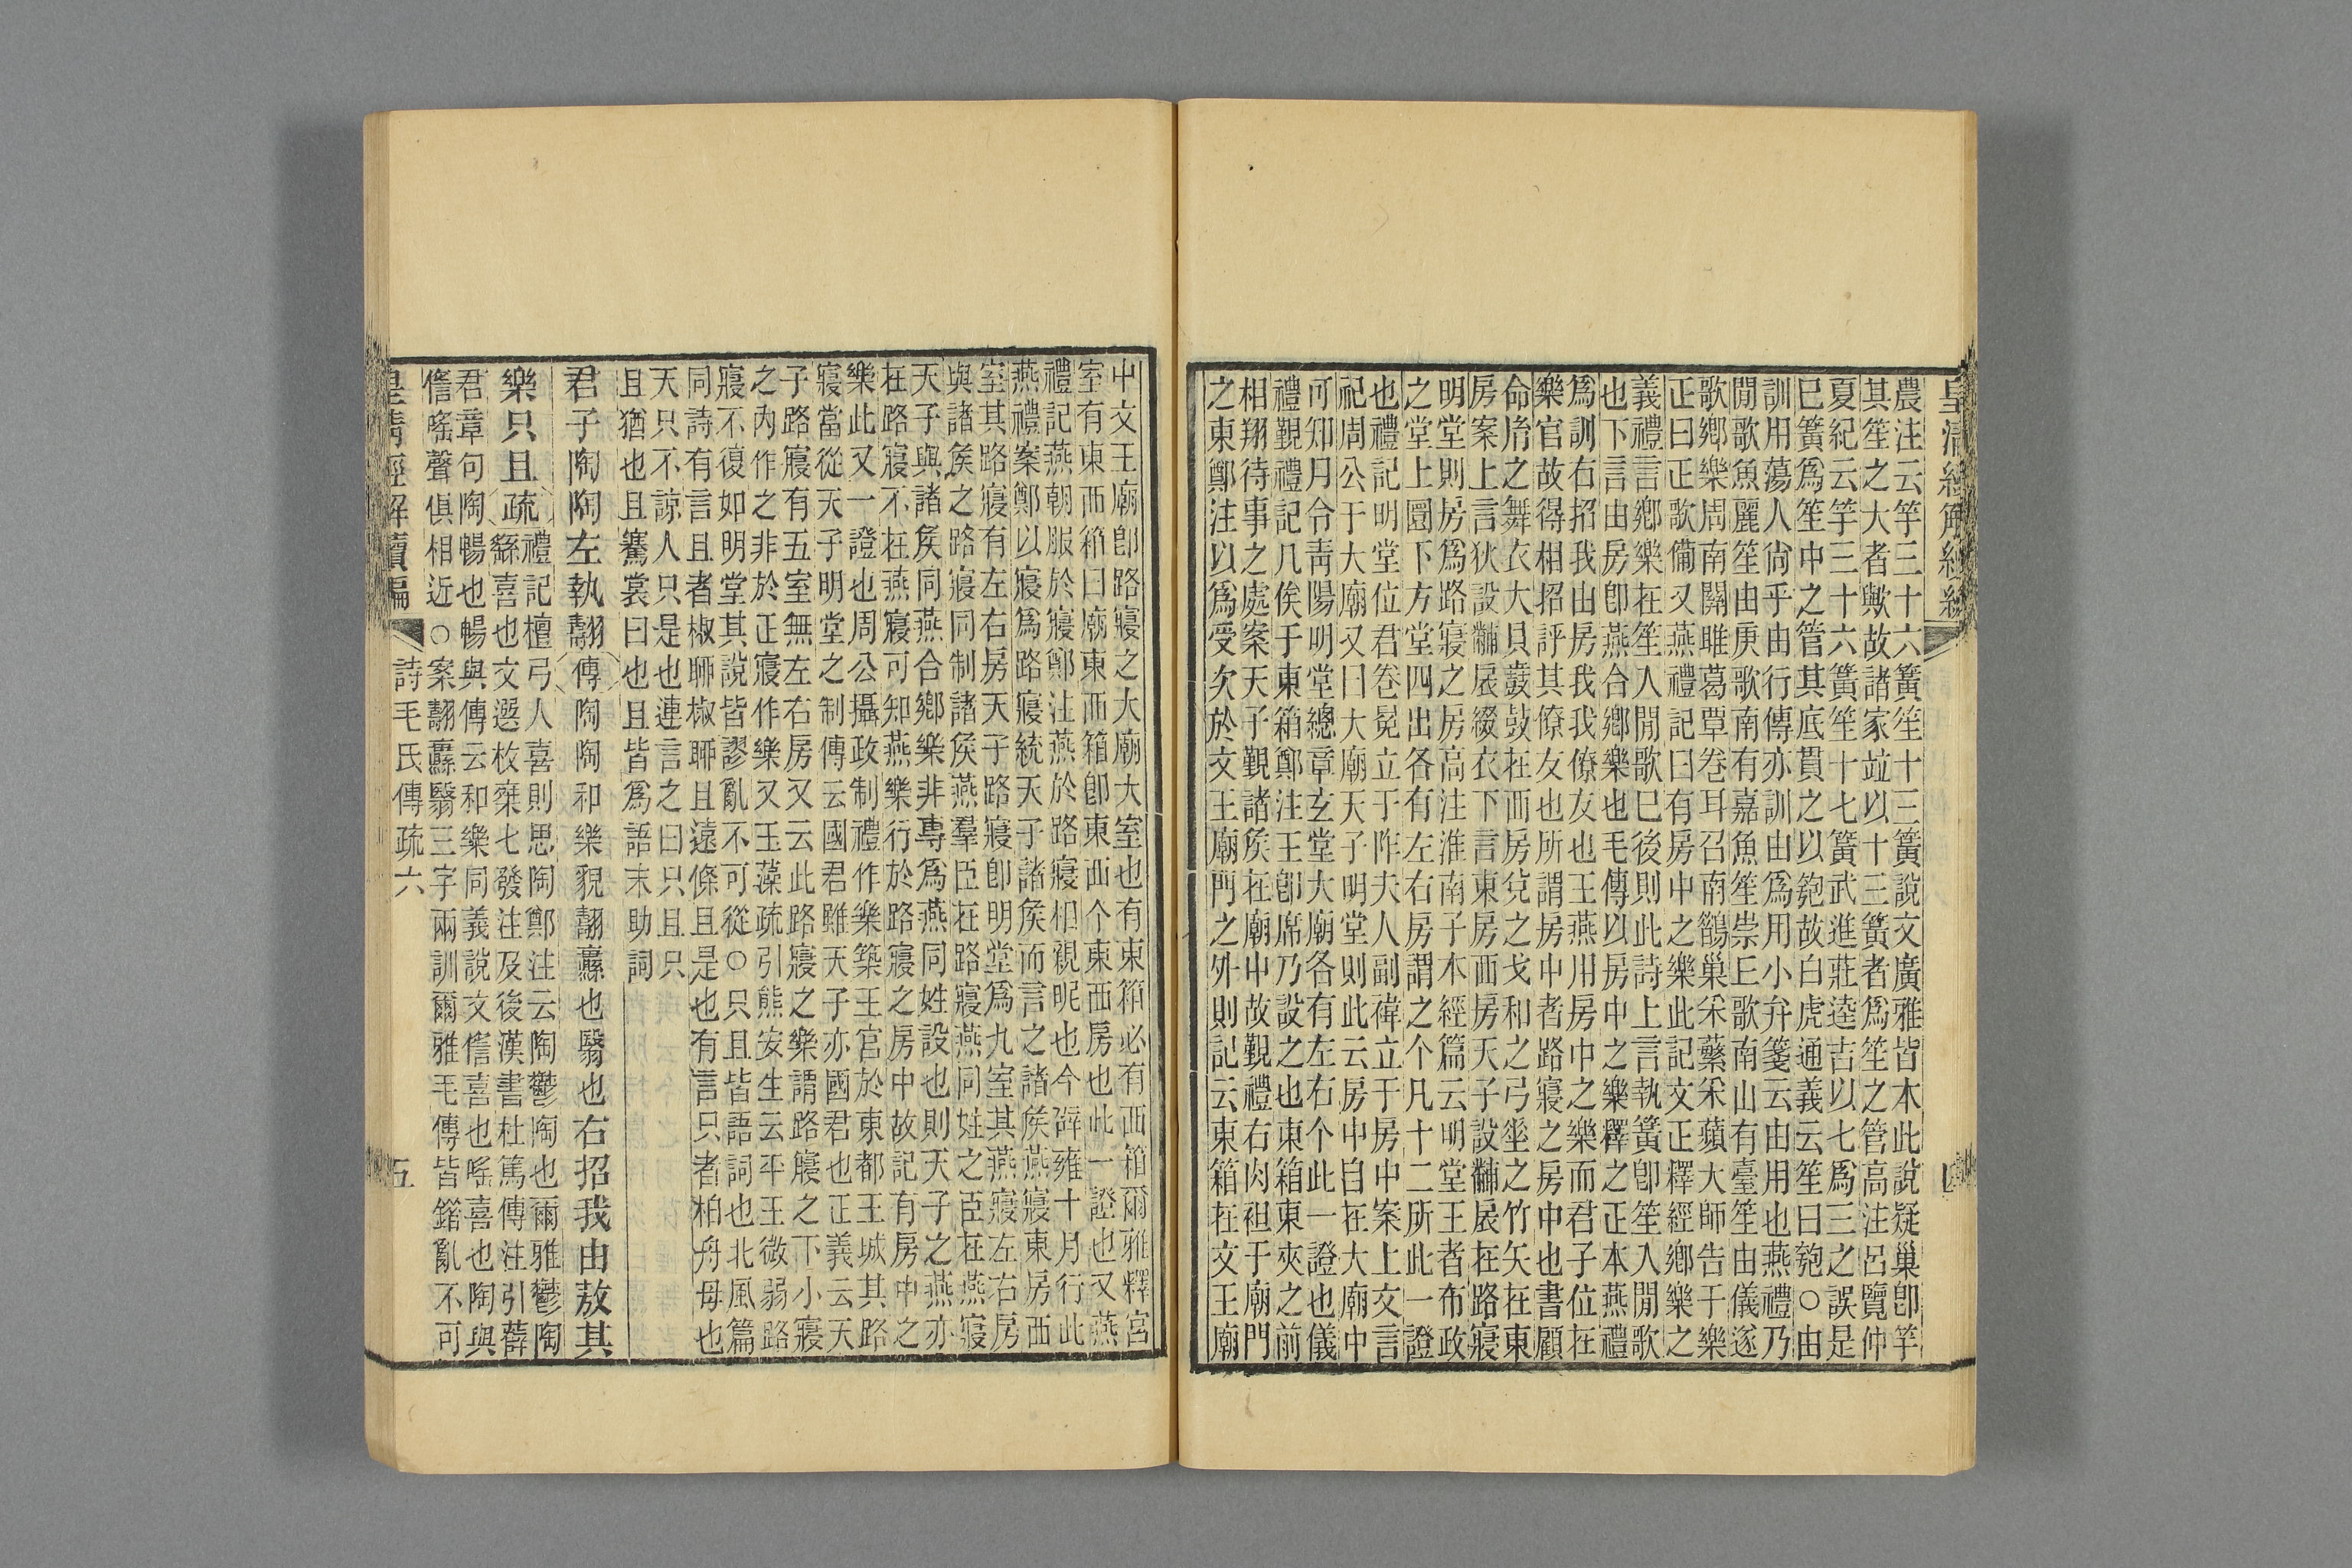 皇清經解續編
農注云竽三十六簧笙十三簧說文廣雅皆本此說疑巢卽竽
其笙之大者歟故諸家竝以十三簧者爲笙之管高注呂覽仲
夏紀云竽三十六簧笙十七簧武進莊逵吉以七爲三之誤是
巳簧爲笙中之管其底貫之以匏故白虎通義云笙曰匏○由
訓用蕩人尙乎由行傳亦訓由爲用小弁箋云由用也燕禮乃
閒歌魚麗笙由庚歌南有嘉魚笙崇丘歌南山有臺笙由儀遂
歌鄉樂周南關雎葛覃卷耳召南鵲巢采蘩采蘋大師告于樂
正曰正歌備又燕禮記曰有房中之樂此記文正釋經鄉樂之
義禮言鄉樂在笙人閒歌巳後則此詩上言執簧卽笙入閒歌
也下言由房卽燕合鄉樂也毛傳以房中之樂釋之正本燕禮
爲訓右招我由房我我僚友也王燕用房中之樂而君子位在
樂官故得相招評其僚友也所謂房中者路寢之房中也書顧
命胤之舞衣大貝鼖鼓在西房兌之戈和之弓垂之竹矢在東
房案上言狄設黼扆綴衣下言東房西房天子設黼扆在路寢
明堂則房爲路寢之房高注淮南子本經篇云明堂王者布政
之堂上圜下方堂四出各有左右房謂之个凡十二所此一證
也禮記明堂位君卷冕立于阼夫人副褘立于房中案上文言
祀周公于大廟又曰大廟天子明堂則此云房中自在大廟中
可知月令靑陽明堂總章玄堂大廟各有左右个此一證也儀
禮覲禮記几俟于東箱鄭注王卽席乃設之也東箱東夾之前
相翔待事之處案天子覲諸矦在廟中故覲禮右肉袒于廟門
之東鄭注以爲受次於文王廟門之外則記云東箱在文王廟
中文王廟卽路寢之大廟大室也有東箱必有西箱爾雅釋宮
室有東西箱曰廟東西箱卽東西个東西房也此一證也又燕
禮記燕朝服於寢鄭注燕於路寢相親昵也今辟雍十月行此
燕禮案鄭以寢爲路寢統天子諸矦而言之諸矦燕寢東房西
室其路寢有左右房天子路寢卽明堂爲九室其燕寢左右房
與諸矦之路寢同制諸矦燕羣臣在路寢燕同姓之臣在燕寢
天子與諸矦同燕合鄉樂非專爲燕同姓設也則天子之燕亦
在路寢不在燕寢可知燕樂行於路寢之房中故記有房中之
樂此又一證也周公攝政制禮作樂築王宮於東都王城其路
寢當從天子明堂之制傳云國君雖天子亦國君也正義云天
子路寢有五室無左右房又云此路寢之樂謂路寢之下小寢
之內作之非於正寢作樂又玉藻疏引熊安生云平王微弱路
寢不復如明堂其說皆謬亂不可從○只且皆語詞也北風篇
同詩有言且者椒聊椒聊且遠條且是也有言只者柏舟母也
天只不諒人只是也連言之曰只且只
且猶也且騫裳曰也且皆爲語末助詞
君子陶陶左執翿傳陶陶和樂貌翿纛也翳也右招我由敖其
樂只且疏禮記檀弓人喜則思陶鄭注云陶鬱陶也爾雅鬱陶
繇喜也文選枚椉七發注及後漢書杜篤傳注引薛
君章句陶暢也暢與傳云和樂同義說文僖喜也㗛喜也陶與
僖㗛聲俱相近○案翿纛翳三字兩訓爾雅毛傳皆錯亂不可
皇淸經解續編
詩毛氏傳疏六
五